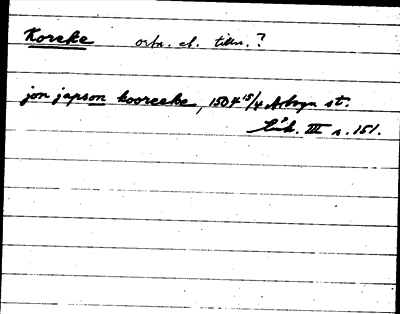 Koreke ortn. el. tilln.?
jon japson kooreeke, 1504 15/4 Arboga st.
III s. 151.